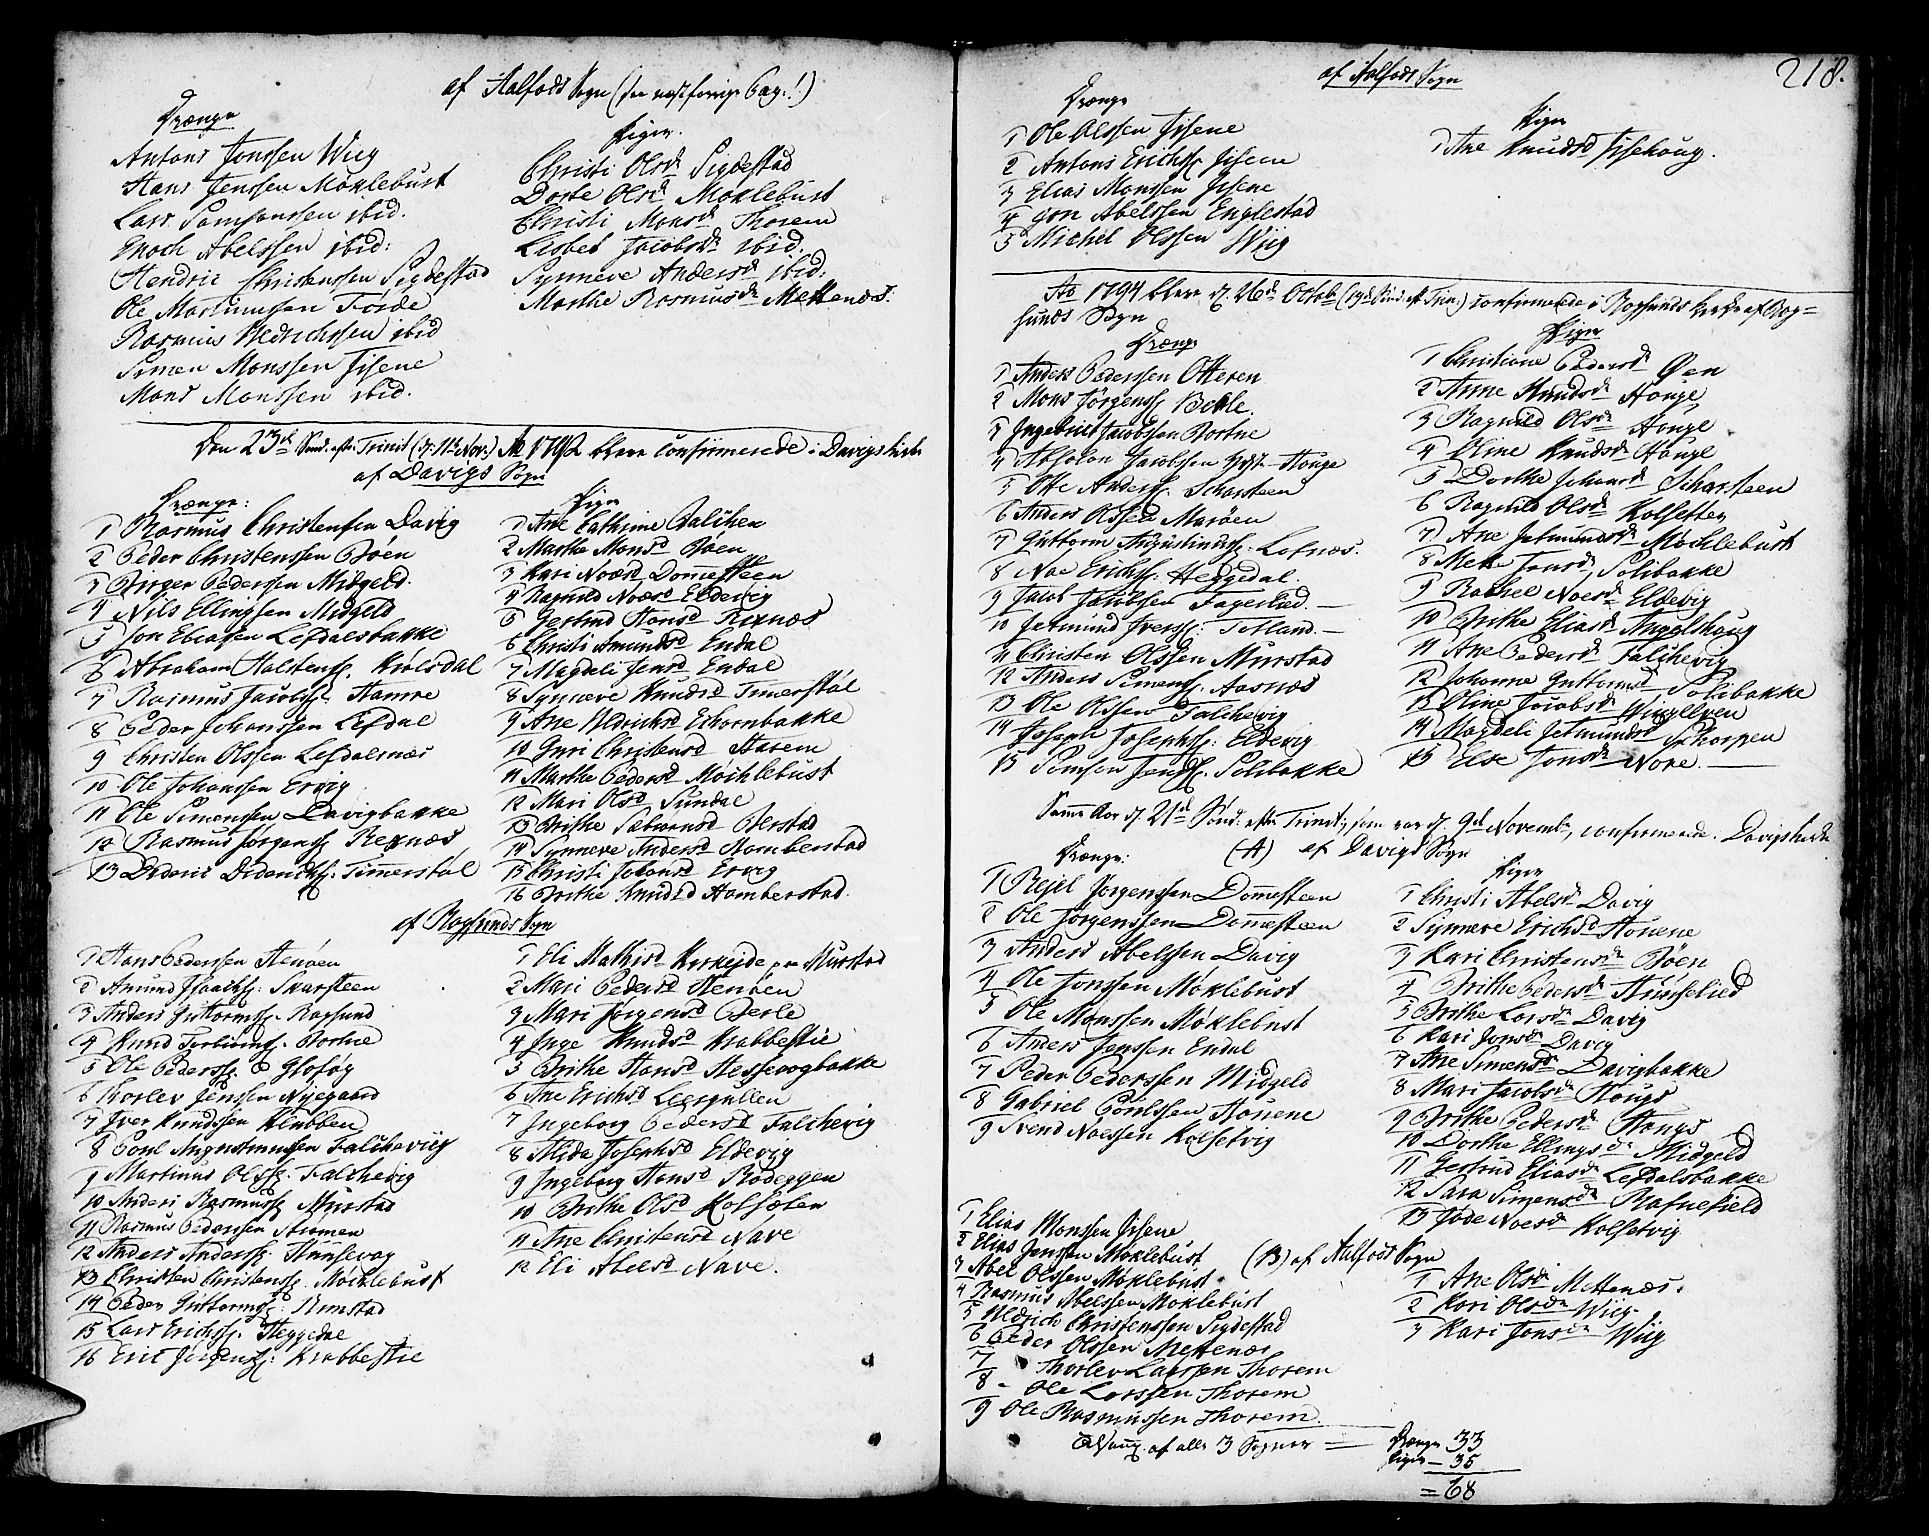 af Aalfods Sogn (see næstforrige Pag:!)
Drænge
Antons Jonssen Wiig
Hans Jenssen Möklebust
Lars Samsonssen ibid.
Enoch Abelssen ibid:
Hendric Christenssen Sigdestad
Ole Martinussen Förde
Rasmus Uldrichssen ibid
Simen Monssen Jisene
Mons Monssen ibid.
Piger.
Christi Olsd Sigdestad
Dorte Olsd Möklebust
Christi Monsd Thorem
Lisbet Jacobsd ibid.
Synneve Andersd ibid:
Marthe Rasmusd Mettenæs.
Den 23d Sønd. efter Trinit (d. 11te Nov.) Ao 1792 bleve confirmerede i Davigs kirke
af Davigs Sogn
Drænge:
1 Rasmus Christensen Davig
2 Peder Christenssen Böen
3 Birger Pederssen Midgeld.
4 Nils Ellingssen Midgeld
5 Jon Eliassen Lefdalsbakke
6 Abraham Halstenss. Kiölsdal
7 Rasmus Jacobss. Hamre
8 Peder Johanssen Lefdal
9 Christen Olssen Lefdalsnæs
10 Ole Johanssen Ervig
11 Ole Simenssen Davigbakke
12 Rasmus Jörgenss Rexnæs
13 Dideric Diderichss. Timmerstöl
Piger
1 Ane Cathrine Dalchen
2 Marthe Monsd Böen
3 Kari Noæsd Domesteen
4 Ragnild Noæsd Eldevig
5 Gertrud Hansd Rexnæs
6 Christi Amundsd Endal
7 Magdeli Jensd Endal
8 Synneve Knudsd Timerstöl
9 Ane Uldrichsd Eshornbakke
10 Guri Christensd Harem
11 Marthe Pedersd Mochlebust
12 Mari Olsd Sundal
13 Brithe Salomonsd Berstad
14 Synneve Andersd Homberstad
15 Christi Johansd Ervig
16 Brithe Knudsd Homberstad.
af Rugsunds Sogn
1 Hans Pederssen Henöen
2 Amund Isaachss. Skarsteen
3 Anders Guttormss. Rugsund
4 Knud Torbiørnss. Bortne
5 Ole Pederss. Glofög
6 Torlev Jenssen Nÿegaard
7 Iver Knudssen Klubben
8 Poul Augustinussen Falcheviig
9 Martinus Olss. Falchevig
10 Anders Rasmuss. Murstad
11 Rasmus Pederssen Stromen
12 Anders Anderss. Hunsevog
13 Christen Christenss. Mochlebust
14 Peder Guttormss. Rimstad
15 Lars Erichss. Heggedal
16 Eric Jörgenss. Krabbestie
1 Eli Mathisd Kirkeside Murstad
2 Mari Pedersd Henöen
3 Mari Jörgensd Berle
4 Inge Knudsd Krabbestie
5 Brithe Hansd Hessevogbakke
6 Ane Erichsd Leergullen
7 Ingeborg Pedersd Falchevig
8 Alida Josephsd Eldevig
9 Ingeborg Hansd Rödeggen
10 Brithe Olsd Kolseten
11 Ane Christensd Nave
12 Eli Abelsd Nave.
218.
af Aalfods Sogn
Drænge
1 Ole Olssen Jisene
2 Antons Erichss. Jisene
3 Elias Monssen Jisene
4 Jon Abelssen Englestad
5 Michel Olssen Wiig
Piger
1 Ane Knudsd Jisehoug.
Ao 1794 bleve d. 26de Octob: (19de Sønd. eft. Trin.) confirmerede i Rugsunds kirke af Rug=
sunds Sogn
Drænge
1 Anders Pederssen Otteren
2 Mons Jörgenss Berle.
3 Ingebrict Jacobssen Bortne
4 Absolon Jacobssen Houge
5 Ole Anderss. Scharsteen
6 Anders Olssen Maröen
7 Guttorm Augustinuss. Lofnæs.
8 Noe Erichss. Heggedal.
9 Jacob Jacobsen Fagerlied.
10 Jetmund Iverss. Tetland.
11 Christen Olssen Murstad
12 Anders Simenss. Aasnæs
13 Ole Olssen Falchevig
14 Joseph Josephss: Eldevig
15 Simsen Jenss. Solibakke
Piger
1 Christiane Pedersd Øen
2 Anne Knudsd Houge
3 Ragnild Olsd Houge
4 Oline Knudsd Houge
5 Dorthe Johansd Scharsteen
6 Ragnild Olsd Kolsetten
7 Ane Jetmundsd Möchlebust
8 Mette Jonsd Solibakke
9 Rachel Noesd Eldevig
10 Brithe Eliasd Angelshoug
11 Ane Pedersd Falchevig
12 Johanne Guttormsd Solibakke
13 Oline Jacobsd Wingelven
14 Magdeli Jetmundsd Schorpen
15 Else Jonsd Nore.
Samme Aar d. 21de Sønd. efter Trinit:, som var d. 9de Novembr, confirmerede i Davigs kirke
(A) af Davigs Sogn
Drænge:
1 Rejel Jörgenssen Domesteen
2 Ole Jörgenssen Domesteen
3 Anders Abelssen Davig
4 Ole Jonssen Möklebust
5 Ole Monssen Möklebust
6 Anders Jenssen Endal
7 Peder Pederssen Midgeld
8 Gabriel Poulssen Houene
9 Svend Noessen Kolsetvig
Piger
1 Christi Abelsd Davig
2 Synneve Erichsd Houene
3 Kari Christensd Böen
4 Brithe Pedersd Hunselied
5 Brithe Larsd Davig
6 Kari Jonsd Davig
7 Ane Simensd Davigbakke
8 Mari Jacobsd Hougs
9 Brithe Pedersd Hougs
10 Dorthe Ellingsd Midgeld
11 Gertrud Eliasd Lefdalsbakke
12 Sara Simensd Rafnefield
13 Jøde Noesd Kolsetvig
(B) af Aalfods Sogn
1 Elias Monssen Jisene
2 Elias Jenssen Moklebust
3 Abel Olssen Möklebust
4 Rasmus Abelssen Moklebust
5 Uldrich Christenssen Sigdestad
6 Peder Olssen Mettenæs
7 Thorlev Larssen Thorem
8 Ole Larssen Thorem
9 Ole Rasmussen Thorem
1 Ane Olsd Mettenæs.
2 Kari Olsd Wiig
3 Kari Jonsd Wiig
af alle 3 Sogner = Drænge 33
Piger — 35
= 68